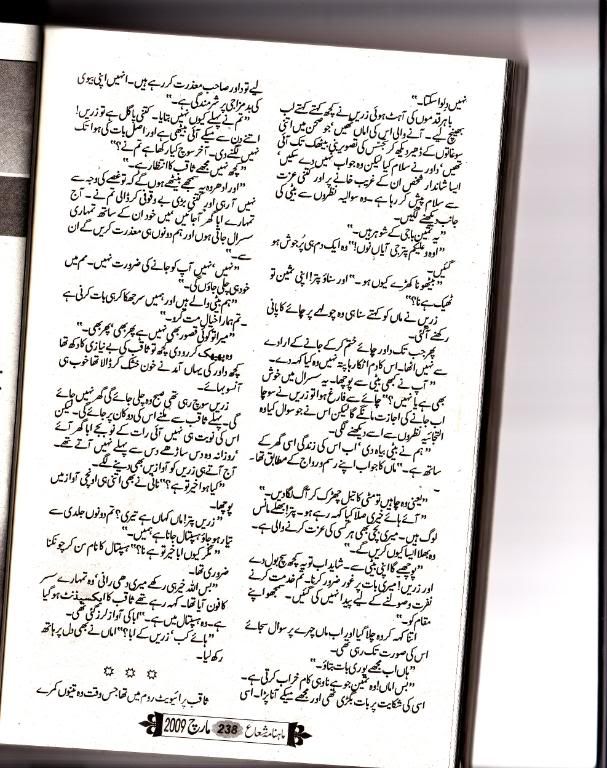 نہیں دلوا سکتا۔"
باہر قدموں کی آہٹ ہوئی زریں نے کچھ کہتے کہتے لب
بھینچ لیے۔ آنے والی اس کی اماں تھیں' جو صحن میں اتنی
سوغاتوں کے ڈھیر دیکھ کر جنس کی تصویر بنی بیٹھک تک آئی
تھیں' داور نے سلام کیا لیکن وہ جواب نہیں دے سکیں
ایسا شاندار شخص ان کے غریب خانے پر اور کتنی عزت
سے سلام پیش کر رہا ہے۔ وہ سوالیہ نظروں سے بیٹی کی
جانب دیکھنے لگیں۔
"یہ ثمین باجی کے شوہر ہیں۔"
"اوہ وعلیکم پتر جی آیاں نوں!" وہ ایک دم ہی پُرجوش ہو
گئیں۔
"بیٹھو نا کھڑے کیوں ہو۔" "اور سناؤ پتر! اپنی ثمین تو
ٹھیک ہے نا؟"
زریں نے ماں کو کہتے سنا ہی وہ چولہے پر چائے کا پانی
رکھنے آ گئی۔
پھر جب تک داور چائے ختم کر کے جانے کے ارادے
سے نہیں اٹھا۔ اس کا دم اٹکا رہا پتہ نہیں وہ کیا کہہ دے۔
"آپ نے کبھی بیٹی سے پوچھا۔ یہ سسرال میں خوش
بھی ہے یا نہیں؟" چائے سے فارغ ہوا تو زریں نے سوچا
اب جانے کی اجازت مانگے گا لیکن اس نے جو سوال کیا وہ
التجائیہ نظروں سے اسے دیکھنے لگی۔
"ہم نے بیٹی بیاہ دی' اب اس کی زندگی اسی گھر کے
ساتھ ہے۔" ماں کا جواب اپنے رسم و رواج کے مطابق تھا۔
"یعنی وہ چاہیں تو مٹی کا تیل چھڑک کر آگ لگا دیں۔"
"آئے ہائے خیری صلا کیا کہہ رہے ہو۔ پتر! بھلے مانس
لوگ ہیں۔ میری بچی بھی ہر کسی کی عزت کرنے والی ہے۔
وہ بھلا ایسا کیوں کریں گے۔"
"پوچھیے گا اپنی بیٹی سے۔ شاید اب تو یہ کچھ سچ بول دے
اور زریں! میری بات پر غور ضرور کرنا۔ تم خدمت کرنے
نفرت وصولنے کے لیے پیدا نہیں کی گئیں۔ سمجھو اپنے
مقام کو۔"
اتنا کہہ کر وہ چلا گیا اور اب ماں چہرے پر سوال سجائے
اس کی صورت تک رہی تھی۔
"ہاں اب مجھے پوری بات بتاؤ۔"
"بس اماں! وہ ثمین جو ہے نا وہی کام خراب کرتی ہے۔
اسی کی شکایت پر بات بگڑی تھی اور مجھے میکے آنا پڑا۔ اسی
لیے تو داور صاحب معذرت کر رہے ہیں۔ انہیں اپنی بیوی
کی بدمزاجی پر شرمندگی ہے۔"
"تم نے پہلے کیوں نہیں بتایا۔ کتنی پاگل ہے تو زریں!
اتنے دن سے میکے آئی بیٹھی ہے اور اصل بات کی ہوا تک
نہیں لگنے دی۔ آخر سوچ کیا رکھا ہے تم نے؟"
"کچھ نہیں' مجھے ثاقب کا انتظار ہے۔"
"اور ادھر وہ یہ سمجھے بیٹھے ہوں گے کہ تو غصے کی وجہ سے
نہیں آ رہی اور کتنی بڑی بے وقوفی کر ڈالی تم نے۔ آج
تمہارے ابا گھر آ جائیں میں خود ان کے ساتھ تمہاری
سسرال جاتی ہوں اور ہم دونوں ہی معذرت کریں گے ان
سے۔"
"نہیں' نہیں آپ کو جانے کی ضرورت نہیں۔ میں
خود ہی چلی جاؤں گی۔"
"ہم بیٹی والے ہیں اور ہمیں سر جھکا کر ہی بات کرنی ہے
۔ تم ہمارا خیال مت کرو۔"
"میرا تو کوئی قصور بھی نہیں ہے پھر بھی' پھر بھی۔"
وہ پھپھک کر رو دی کچھ تو ثاقب کی بے نیازی کا دکھ تھا
کچھ داور کی یہاں آمد نے خون خشک کر ڈالا تھا خوب ہی
آنسو بہائے۔
زریں سوچ رہی تھی صبح وہ چلی جائے گی گھر نہیں جائے
گی۔ پہلے ثاقب سے ملنے اس کی دوکان پر جائے گی۔ لیکن
اس کی نوبت ہی نہیں آئی رات کے نو بجے ابا گھر آئے
'روزانہ وہ دس ساڑھے دس سے پہلے نہیں آتے تھے۔
آج آتے ہی زریں کو آوازیں بھی دینے لگے۔
"کیا ہوا خیر تو ہے؟" نانی نے بھی اتنی ہی اونچی آواز میں
پوچھا۔
"زریں پتر! ماں کہاں ہے تیری؟ تم دونوں جلدی سے
تیار ہو جاؤ ہسپتال جانا ہے ہمیں۔"
"مگر کیوں ابا خیر تو ہے نا؟" ہسپتال کا نام سن کر چونکنا
ضروری تھا۔
"بس اللہ خیر ہی رکھے میری دھی رانی' وہ تمہارے سسر
کا فون آیا تھا۔ کہہ رہے تھے ثاقب کا ایکسیڈنٹ ہو گیا
ہے۔ وہ ہسپتال میں ہے۔" ابا کی آواز لرز گئی تھی۔
"ہائے کب' زریں کے ابا؟" اماں نے بھی دل پر ہاتھ
رکھ لیا۔
ثاقب پرائیویٹ روم میں تھا جس وقت وہ تینوں کمرے
ماہنامہ شعاع 238 مارچ 2009